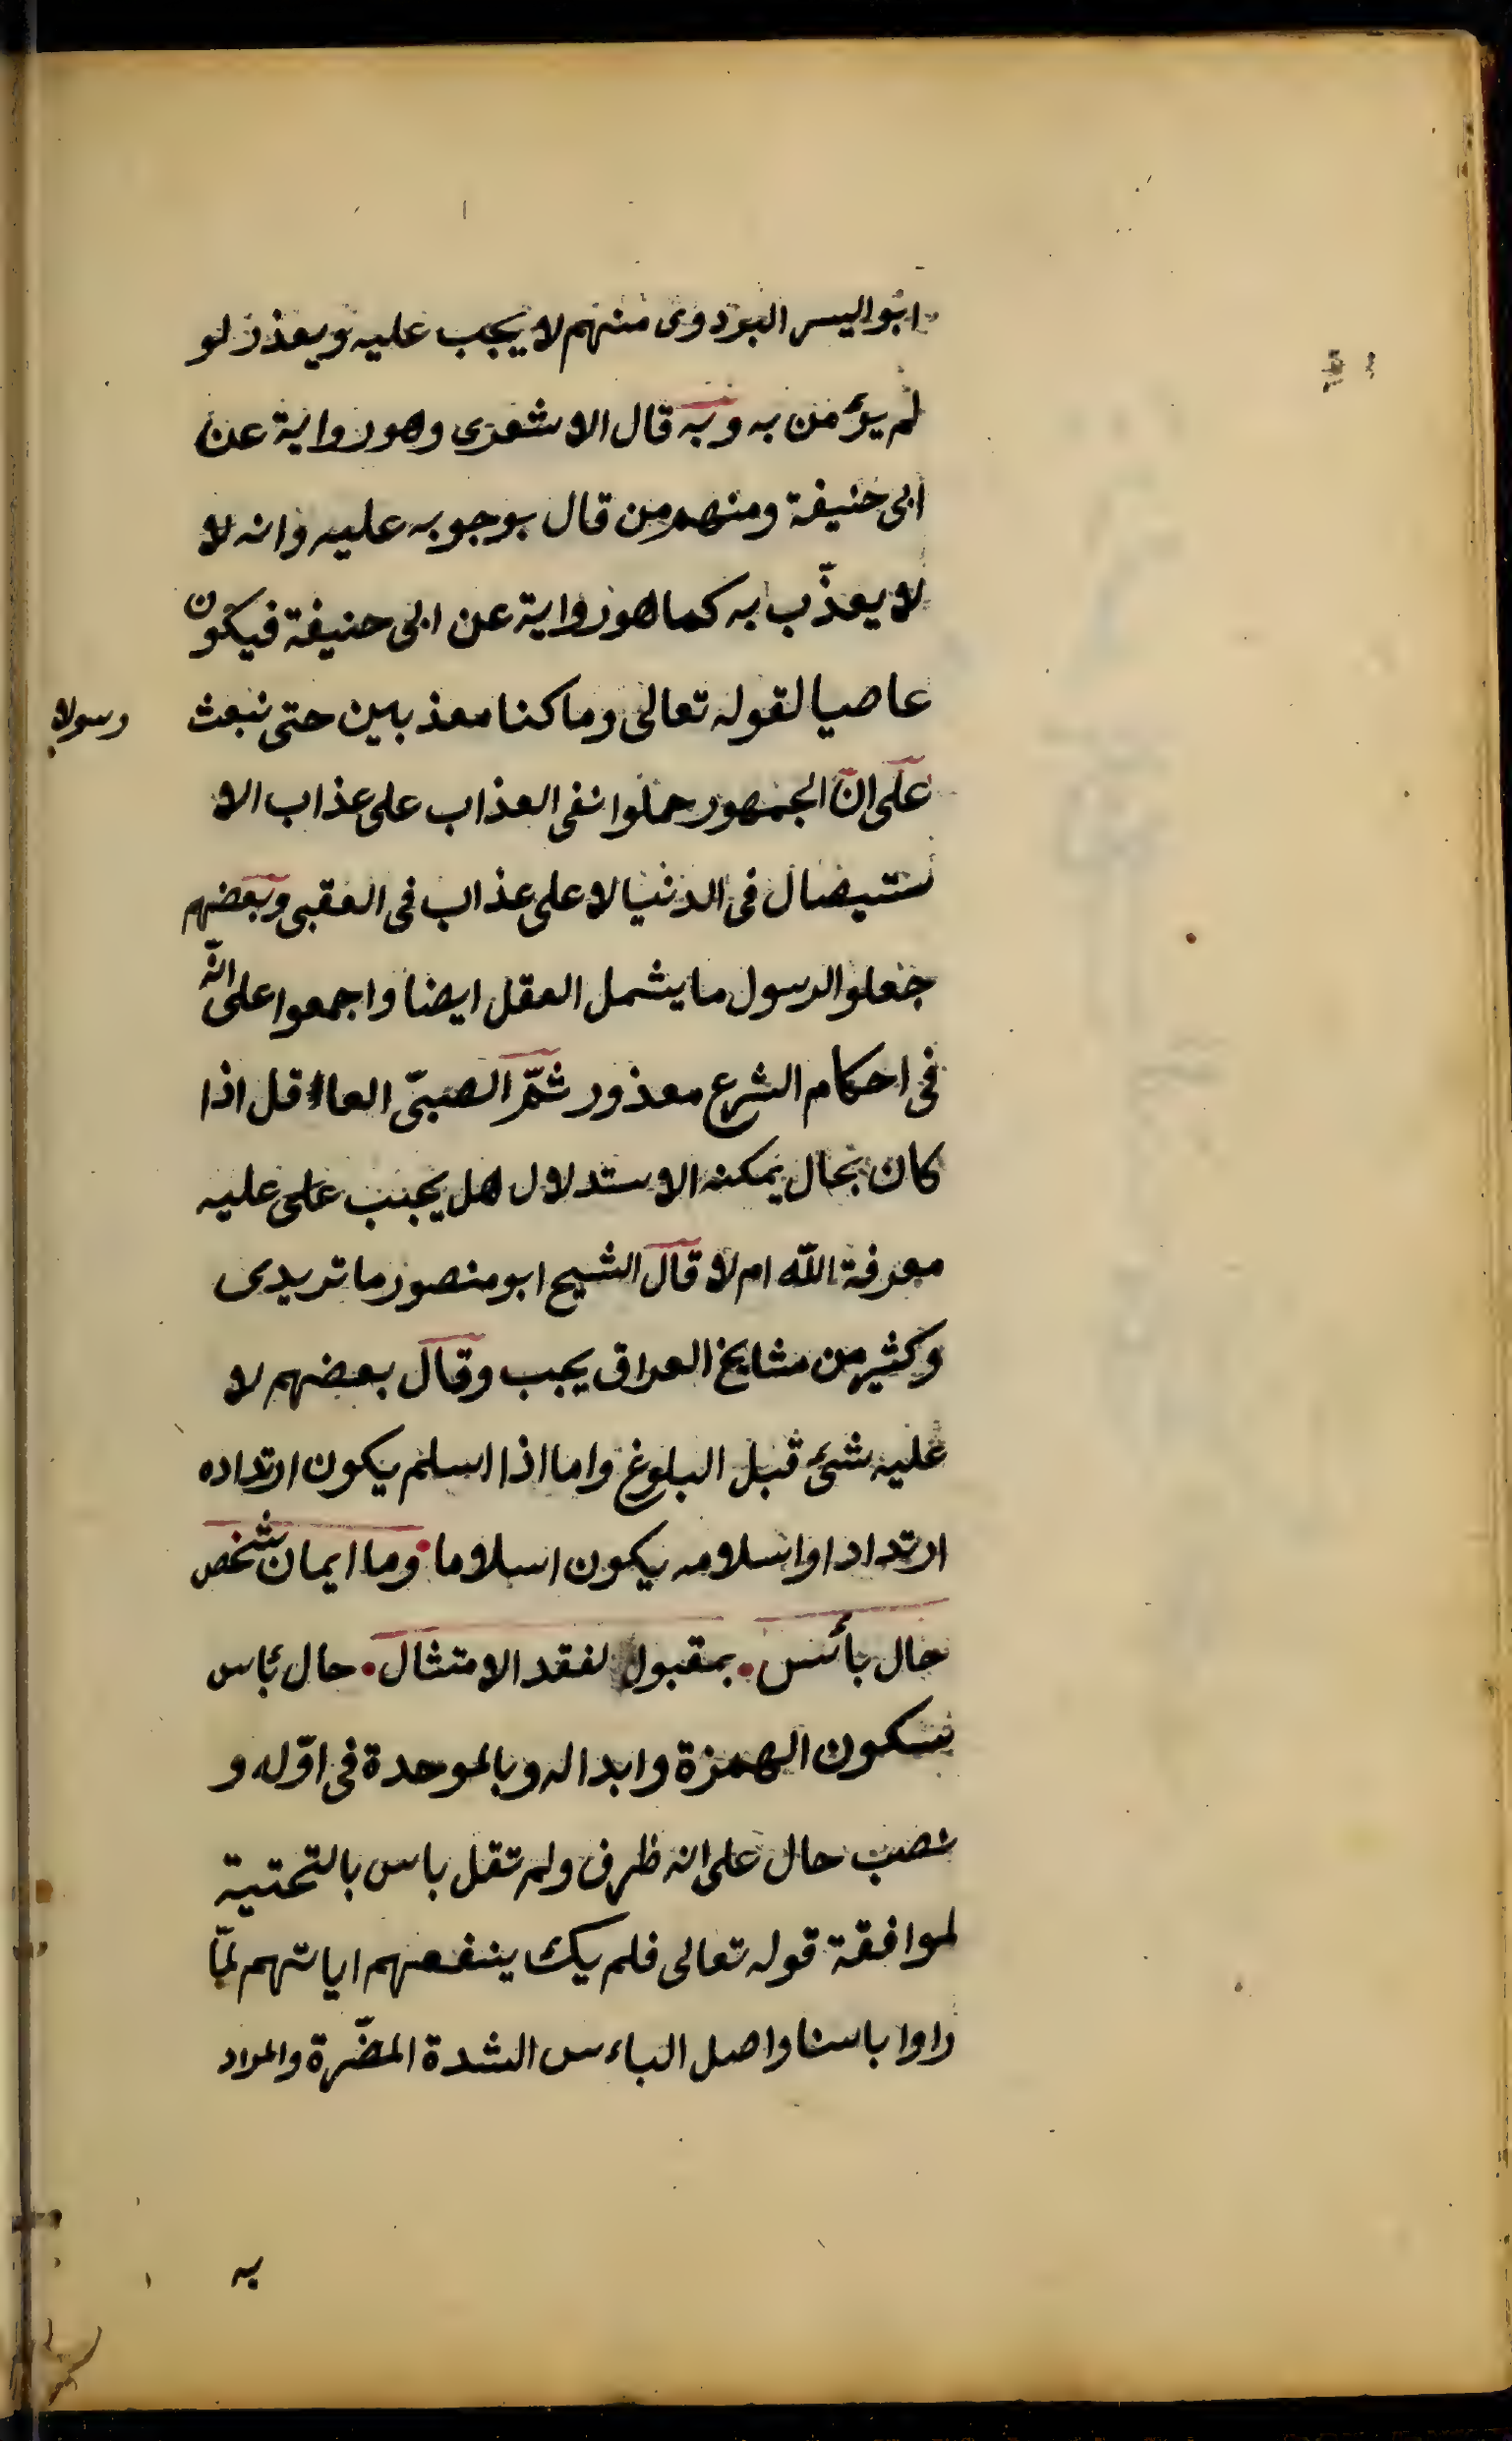 ابواليسر البزدوى منهم لا يجب عليه ويعذذ لو
لم يؤمن به وبه قال الاشعرى وهو رواية عن
ابى حنيفة ومنهم من قال بوجوبه عليه وانه لا
لا يعذّب به كما هو رواية عن ابى حنيفة فيكون
عاصيا لقوله تعالى وما كنا معذبين حتى نبعث رسولا
على انّ الجمهور حملوا نفى العذاب على عذاب الا
ستيصال فى الدنيا لا على عذاب فى العقبى وبعضهم
جعلوا الرسول ما يشمل العقل ايضا واجمعوا على انّه
فى احكام الشرع معذور ثمّ الصبىّ العاقل اذا
كان بحال يمكنه الاستدلال هل يجب على عليه
معرفة اللّه ام لا قال الشيخ ابو منصور ماتريدى
وكثير من مشايخ العراق يجب وقال بعضهم لا
عليه شئ قبل البلوغ واما اذا اسلم يكون ارتداده
ارتدادا واسلامه يكون اسلاما وما ايمان شخص
حال بأس بمقبول لفقد الامتثال حال بأس
بسكون الهمزة وابداله وبالموحدة فى اوّله و
نصب حال على انه ظرف ولم تقل ياس بالتحتية
لموافقة قوله تعالى فلم يك ينفعهم ايمانهم لمّا
راوا باسنا واصل الباءس الشدة المضّرة والمراد
به